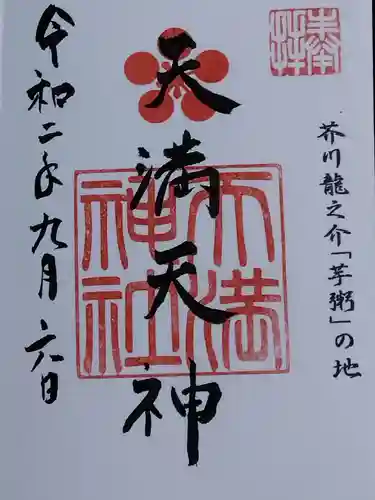 奉拝
芥川龍之介「芋粥」の地
天満天神
天満神社
令和二年九月六日